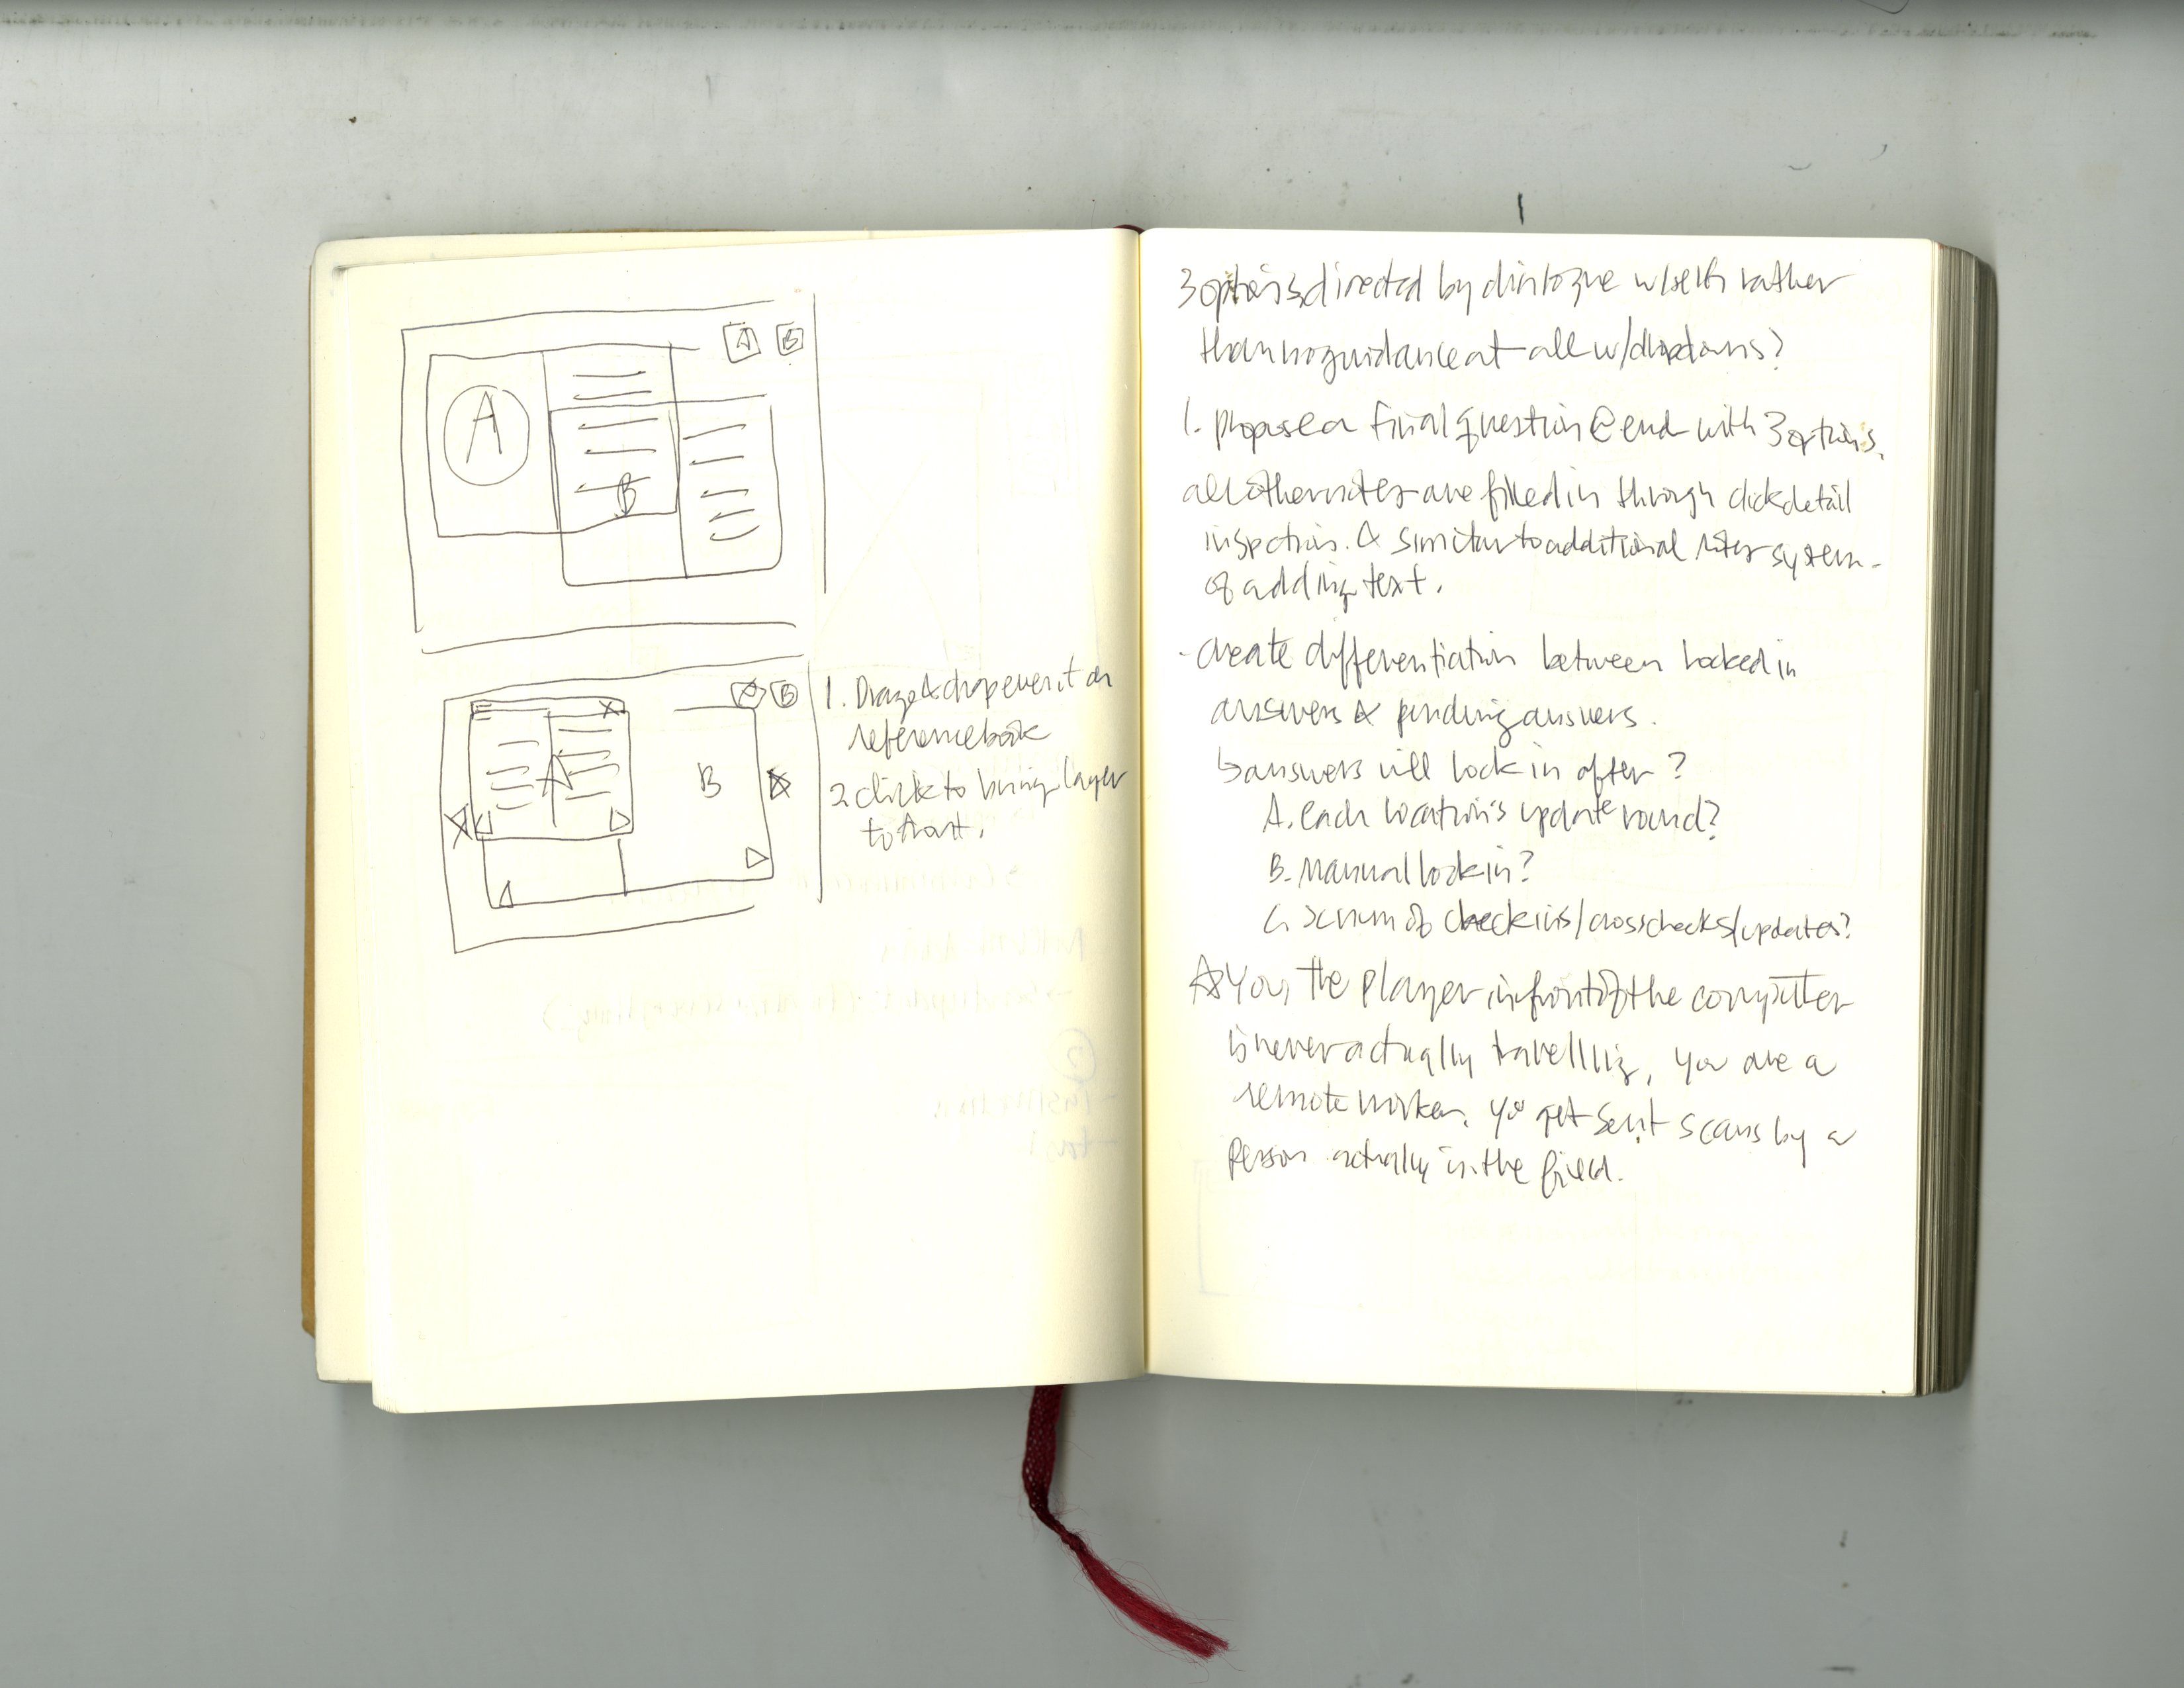 A B
A
B
A B
A
B
1. Drag & drop event on
reference book
2 click to bring layer
to front.
3 options directed by dialogue w/self rather
than no guidance at all w/dropdowns?
1. propose a final question @ end with 3 options.
all other notes are filled in through click detail
inspection. & similar to additional notes system
of adding text.
- Create differentiation between locked in
answers & pending answers.
↳ answers will lock in after ?
A. each location's update round?
B. Manual lock in?
C. sum of check ins/crosschecks/updates?
☆ You, the player in front of the computer
is never actually travelling, you are a
remote worker. you get sent scans by a
person actually in the field.